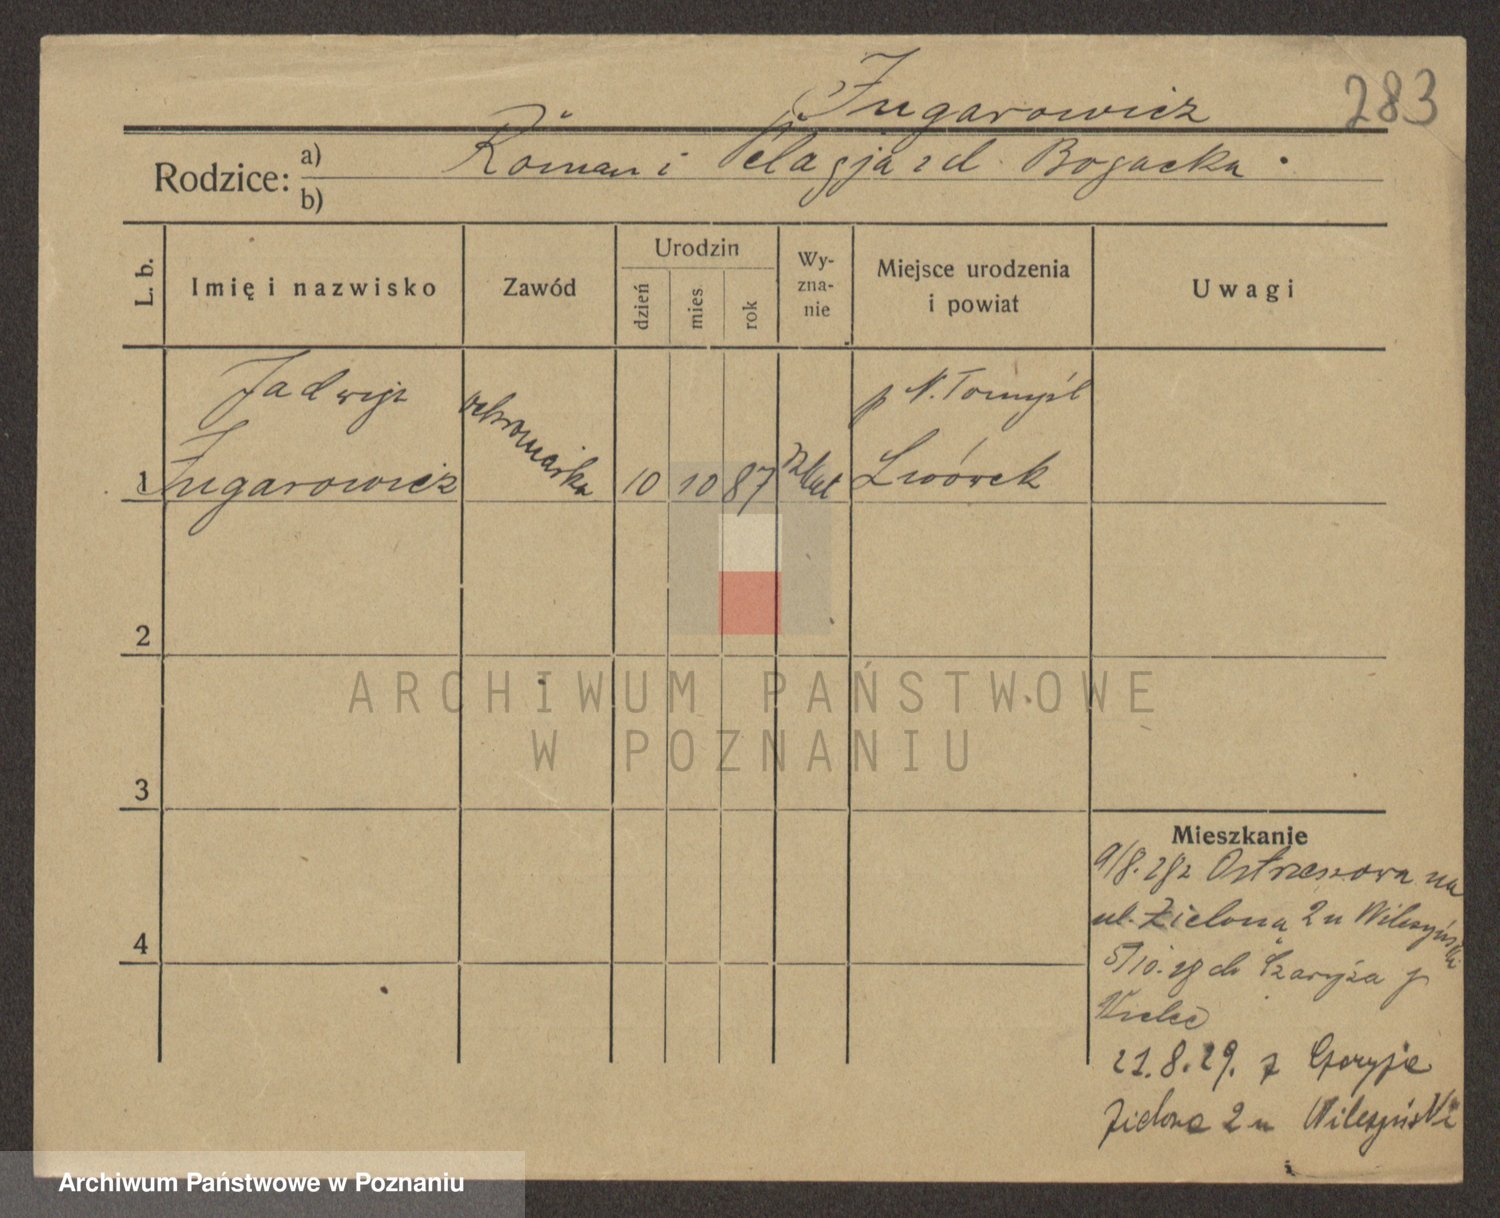 283
Jugarowicz
Rodzice: a) Roman i Pelagja zd. Bogacka
b)
L. b.
Imię i nazwisko
Zawód
Urodzin
dzień
mies.
rok
Wy-
zna-
nie
Miejsce urodzenia
i powiat
Uwagi
1
Jadwiga
Jugarowicz
ochroniarka
10
10
87
rz kat
p N. Tomyśl
Lwówek
2
3
4
Mieszkanie
9/8. 28 z Ostrzeszowa na
ul. Zieloną 2 u Wilezyński
5/10. 28 do
21.8.29. z
Zielona 2 u Wilezyński
ARCHIWUM PAŃSTWOWE
W POZNANIU
Archiwum Państwowe w Poznaniu